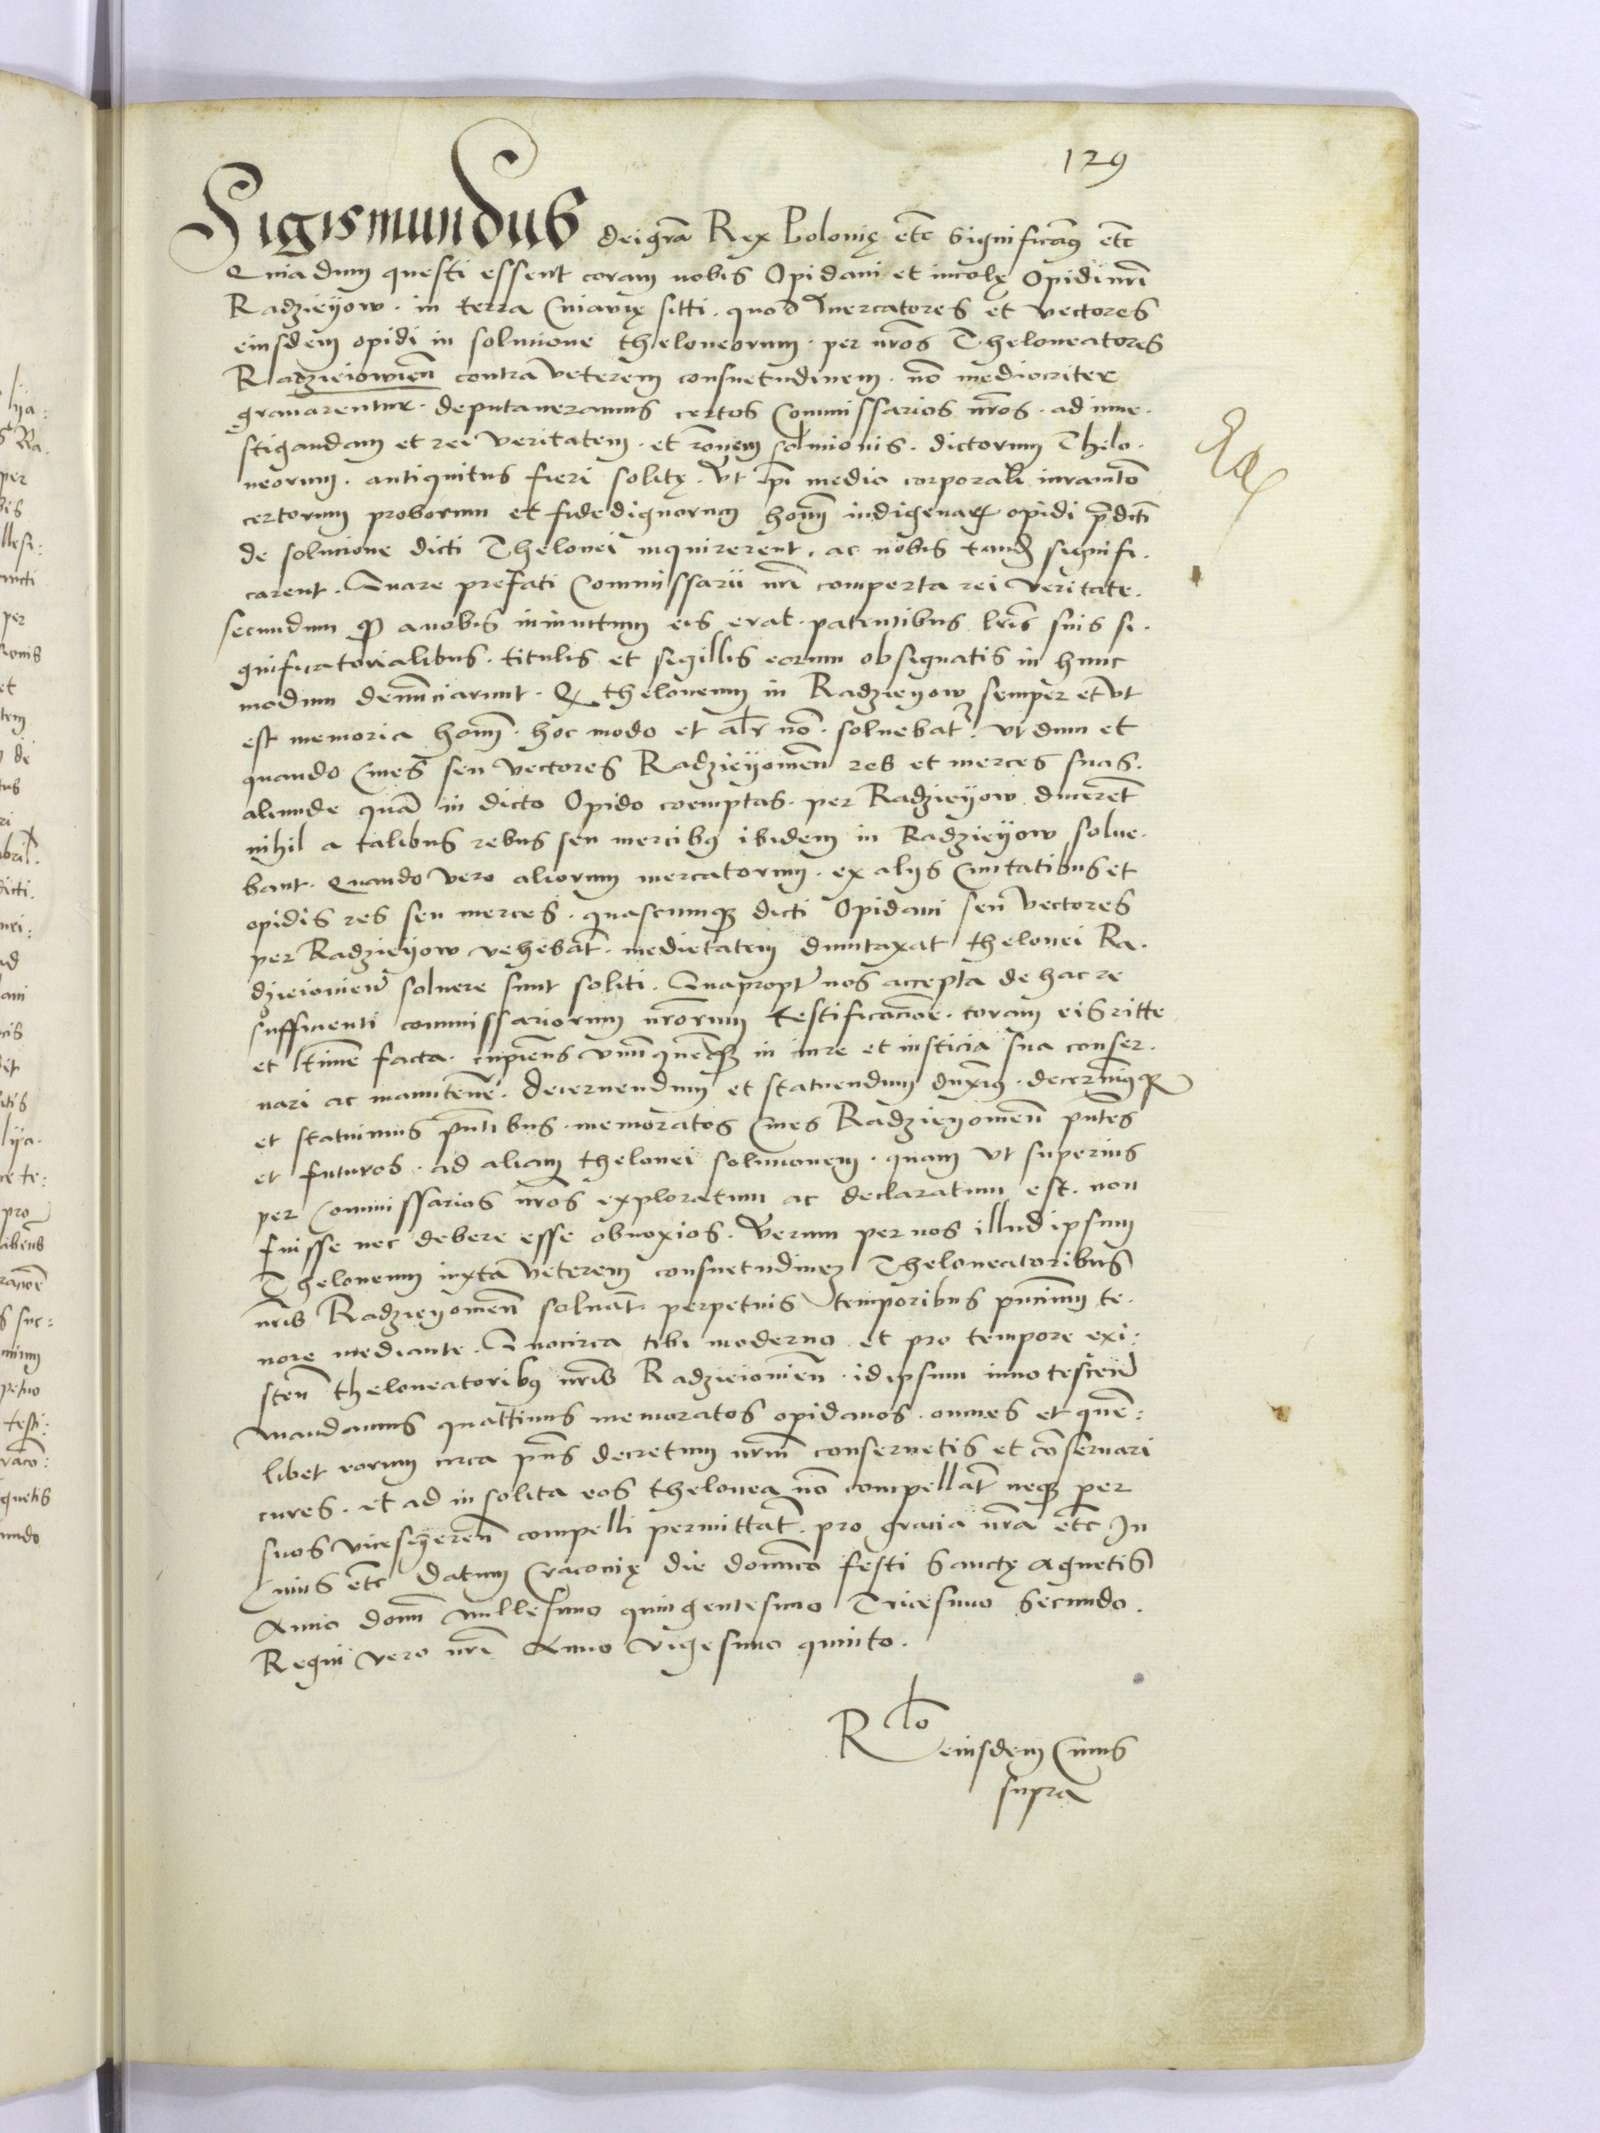 129
Sigismundus dei grã Rex Polonię etc̃ significam9 etc̃
Quia dum questi essent coram nobis Opidani et incolę Opidi nr̃i
Radzieyow · in terra Cuiavię sitti · quod mercatores et vectores
eiusdem opidi in solucione theloneorum · per nr̃os Theloneatores
Radzieiowien̄ contra veterem consuetudinem · nõ mediocriter
gravarentur · deputaueramus certos Commissarios nr̃os · ad inue·
stigandam et rei veritatem · et rõnem solucionis · dictorum Thelo·
neorum · antiquitus fieri solitę · Vt medio corporali iuramẽto
certorum proborum et fidedignorum hom̃ indigenaꝝ opidi p̃dicti
de solucione dicti Thelonei inquirerent, ac nobis tandẽ signifi·
carent · Quare prefati Commissarii nr̃i comperta rei veritate ·
secundum qd̃ a nobis iniunctum eis erat · patentibus lr̃is suis si·
gnificatorialibus · titulis et sigillis eorum obsignatis in hunc
modum denũciarunt · Qd̃ theloneum in Radzieyow semper et vt
est memoria hom̃ · hoc modo et alr̃ nõ · soluebat᷑ · vt dum et
quando Ciues seu vectores Radzieyowien̄ res et merces suas ·
aliunde quã in dicto Opido coemptas · per Radzieyow ducerẽt
nihil a talibus rebus seu mercib9 ibidem in Radzieyow solue·
bant · Quando vero aliorum mercatorum · ex alijs Ciuitatibus et
opidis res seu merces · quascumqꝫ dicti Opidani seu vectores
per Radzieyow vehebãt · medietatem dumtaxat thelonei Ra·
dzieiowien̄ soluere sunt soliti · Quapropt᷑ nos accepta de hac re
sufficienti commissariorum nr̃orum testificaciõe · coram eis ritte
et ltime facta · cupientes vnũquẽqꝫ in iure et iusticia sua conser·
uari ac manutenẽ · Decernendum et statuendum duxim9 · decernim9qꝫ
et statuimus pñtibus · memoratos Ciues Radzieyowien̄ pñtes
et futuros · ad aliam thelonei solucionem · quam vt superius
per Commissarios nr̃os exploratum ac declaratum est · non
fuisse nec debere esse obnoxios · Verum per nos illud ipsum
Theloneum iuxta veterem consuetudinem Theloneatoribus
nr̃is Radzieyowien̄ soluãt · perpetuis temporibus pñcium te·
nore mediante · Quocirca tibi moderno et pro tempore exi:
sten̄ theloneatorib9 nr̃is Radzieiowien̄ · id ipsum innotescen̄
mandamus quattinus memoratos opidanos · omnes et quem:
libet eorum circa pñs decretum nr̃m conseruetis et cõseruari
cures · et ad insolita eos thelonea nõ compellãt neqꝫ per
suos vicesgeren̄ compelli permittãt · pro gracia nr̃a etc̃ In
cuius etc̃ Datum Cracovię die dominico festi Sanctę Agnetis
Anno domini millesimo quingentesimo Tricesimo Secundo ·
Regni vero nr̃i Anno vigesimo quinto ·
Rlo
eiusdem Cuius
supra